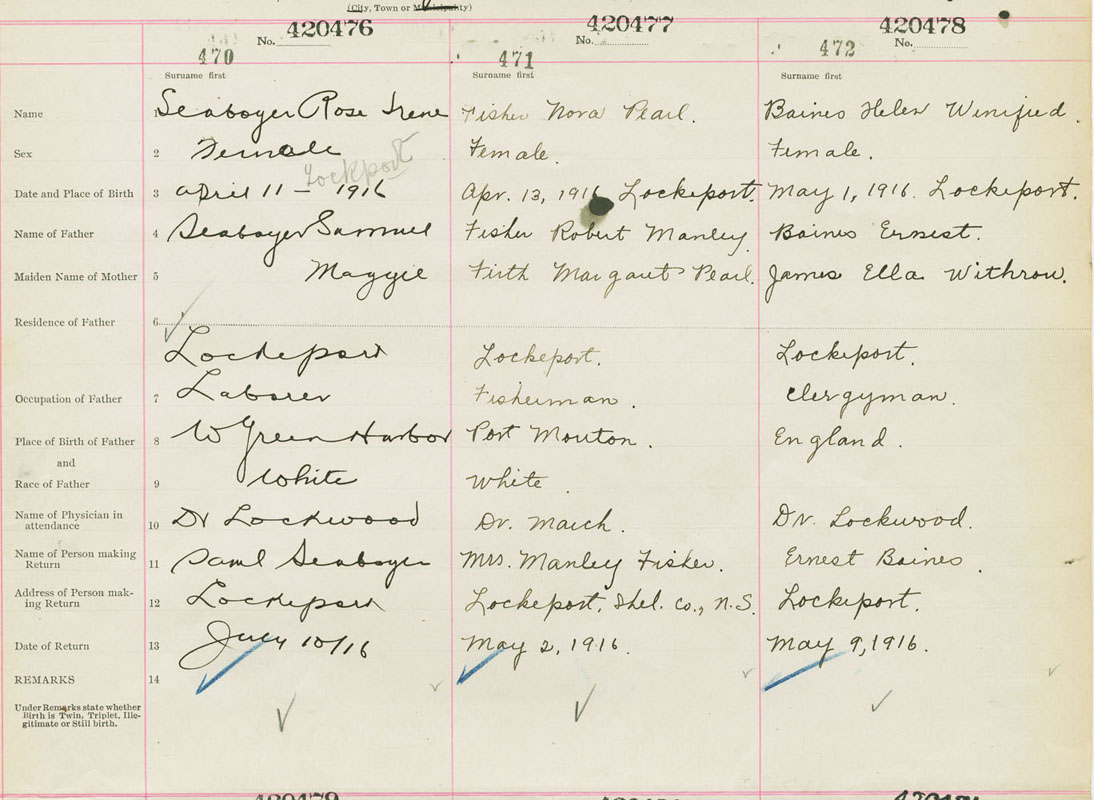 (City, Town or Municipality)
420476 420477 420478
No. No. No.
470 471 472
Surname first Surname first Surname first
Name 1 Seaboyer Rose Irene Fisher Nora Pearl. Baines Helen Winifred.
Sex 2 Female Female. Female.
Lockport
Date and Place of Birth 3 April 11 - 1916 Apr. 13, 1916 Lockeport. May 1, 1916. Lockeport.
Name of Father 4 Seaboyer Samuel Fisher Robert Manley Baines Ernest.
Maiden Name of Mother 5 Maggie Firth Margaret Pearl. James Ella Withrow.
Residence of Father 6
Lockeport Lockeport. Lockeport.
Occupation of Father 7 Laborer Fisherman. Clergyman.
Place of Birth of Father 8 W Green Harbor Port Mouton. England.
and
Race of Father 9 White White
Name of Physician in
attendance 10 Dr Lockwood Dr. March. Dr. Lockwood.
Name of Person making
Return 11 Saml Seaboyer Mrs. Manley Fisher. Ernest Baines.
Address of Person mak-
ing Return 12 Lockeport Lockeport, Shel. Co., N.S. Lockeport.
Date of Return 13 July 10/16 May 2, 1916. May 9, 1916.
REMARKS 14
Under Remarks state whether
Birth is Twin, Triplet, Ille-
gitimate or Still birth.
420479